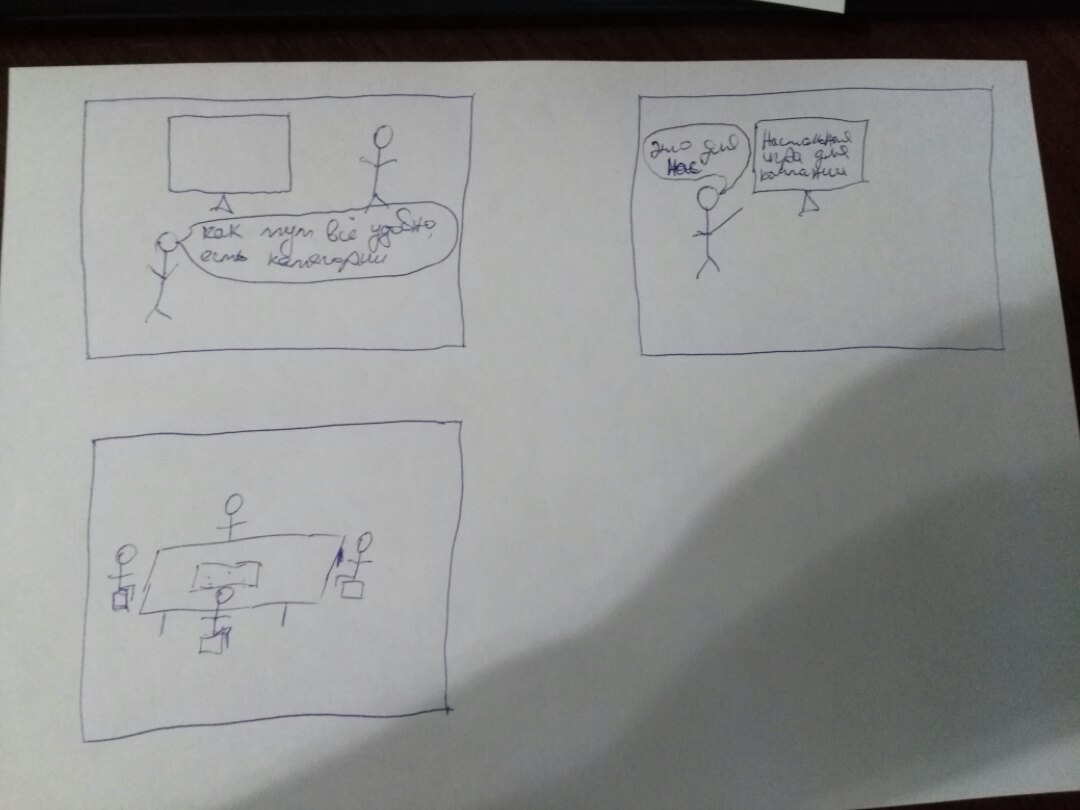 как тут всё удобно,
есть категории
это для
нас
Настольная
игра для
компании